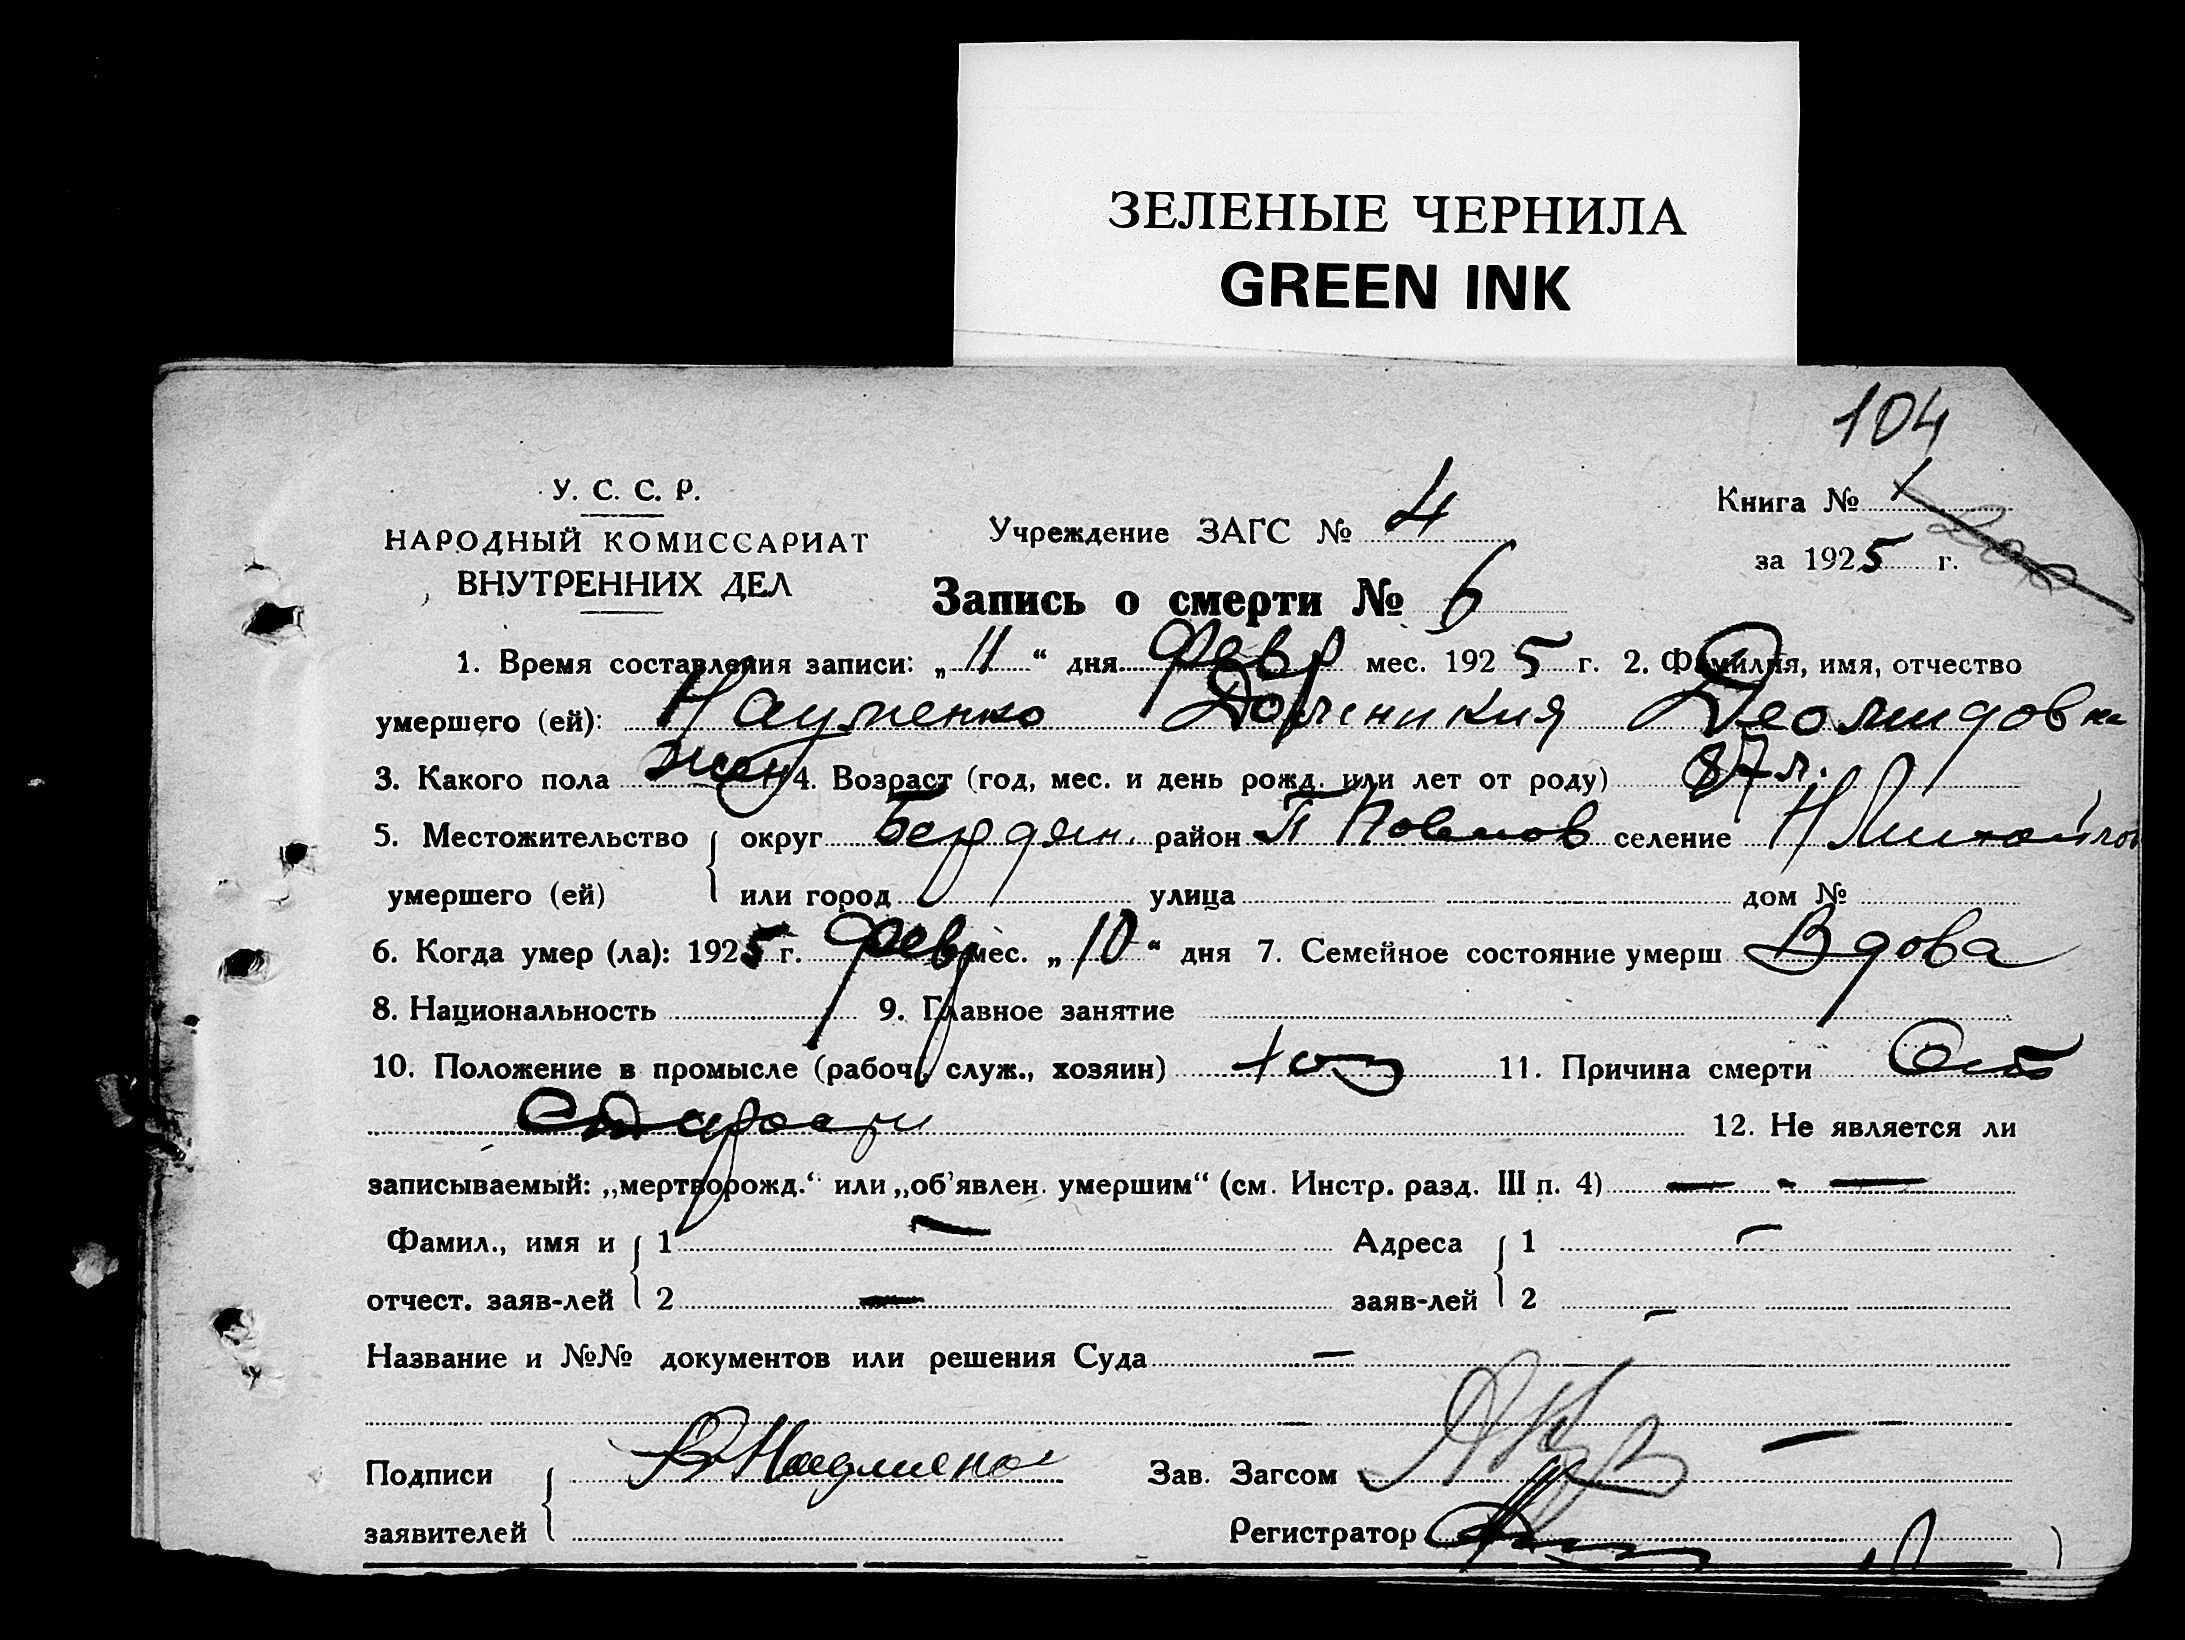 ЗЕЛЕНЫЕ ЧЕРНИЛА
GREEN INK
104
У. С. С. Р.
НАРОДНЫЙ КОМИССАРИАТ
ВНУТРЕННИХ ДЕЛ
Учреждение ЗАГС № 4
Книга № 1
за 1925 г.
Запись о смерти № 6
1. Время составления записи: „11“ дня февр мес. 1925 г. 2. Фамилия, имя, отчество
умершего (ей): Науменко Домникия Деомидовна
3. Какого пола жен 4. Возраст (год, мес. и день рожд. или лет от роду) 87 л.
5. Местожительство округ Бердян. район селение
умершего (ей) или город улица дом №
6. Когда умер (ла): 1925 г. февр мес. „10“ дня 7. Семейное состояние умерш Вдова
8. Национальность 9. Главное занятие
10. Положение в промысле (рабоч., служ., хозяин) хоз 11. Причина смерти От
старости
12. Не является ли
записываемый: „мертворожд.“ или „об'явлен. умершим“ (см. Инстр. разд. III п. 4) — - —
Фамил., имя и 1 — Адреса 1 —
отчест. заяв-лей 2 — заяв-лей 2 —
Название и №№ документов или решения Суда —
Подписи В Науменко Зав. Загсом
заявителей Регистратор